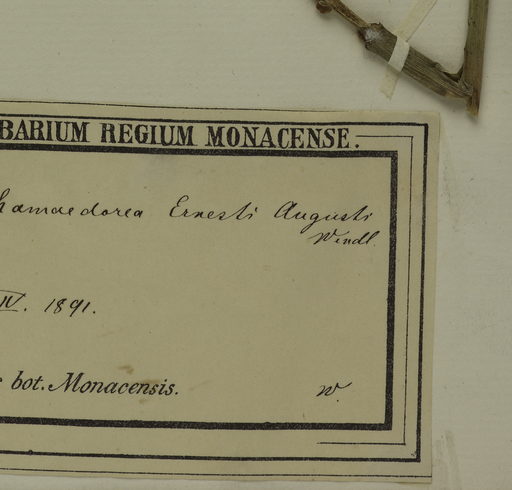 BARIUM REGIUM MONACENSE.
hamaedorea Ernesti Augusti
Wendl.
IV. 1891.
bot. Monacensis.
W.